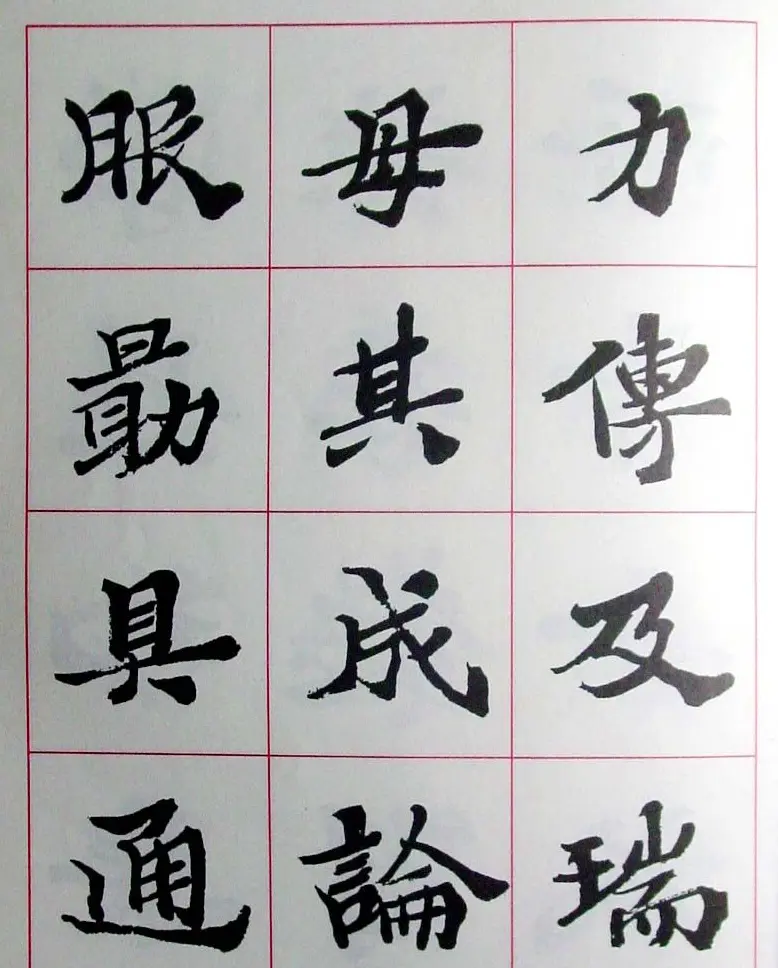 力傳及瑞
母其成論
服勗具通